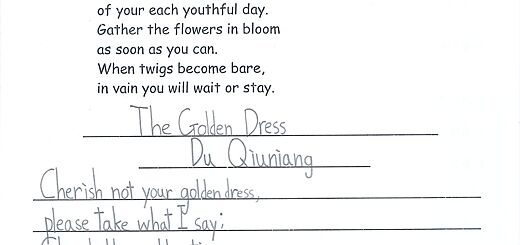 of your each youthful day.
Gather the flowers in bloom
as soon as you can.
When twigs become bare,
in vain you will wait or stay.
The Golden Dress
Du Qiuniang
Cherish not your golden dress,
please take what I say;